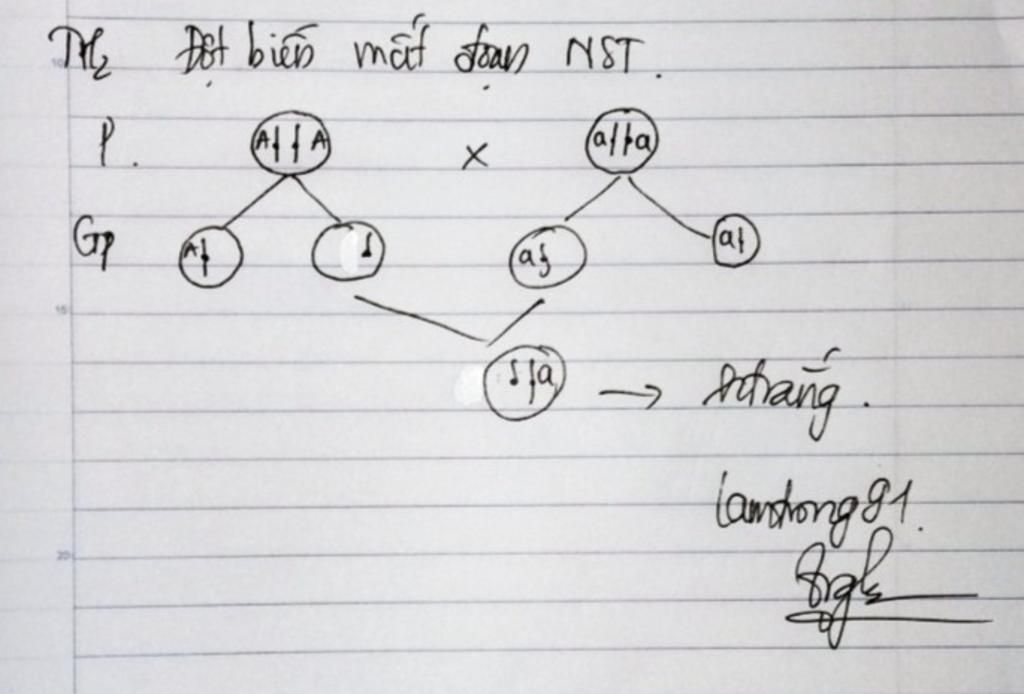 TH2 Đột biến mất đoạn NST.
P. A A x a a
Gp A a a
a → trắng.
lamtrong91.